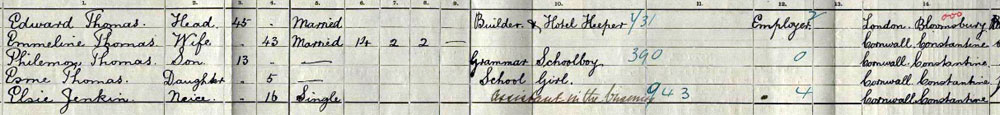 1. 2. 3. 4. 5. 6. 7. 8. 9. 10. 11. 12. 13. 14.
Edward Thomas. Head. 45 - Married Builder & Hotel Keeper 431 Employer 2 London. Bloomsbury 000
Emmeline Thomas. Wife - 43 Married 14 2 2 — Cornwall. Constantine.
Philemon Thomas. Son. 13 — Grammar Schoolboy 390 0 Cornwall. Constantine.
Esme Thomas. Daughter - 5 — School Girl. Cornwall. Constantine.
Elsie Jenkin. Neice. - 16 Single Assistant in the business 943 4 Cornwall. Constantine.